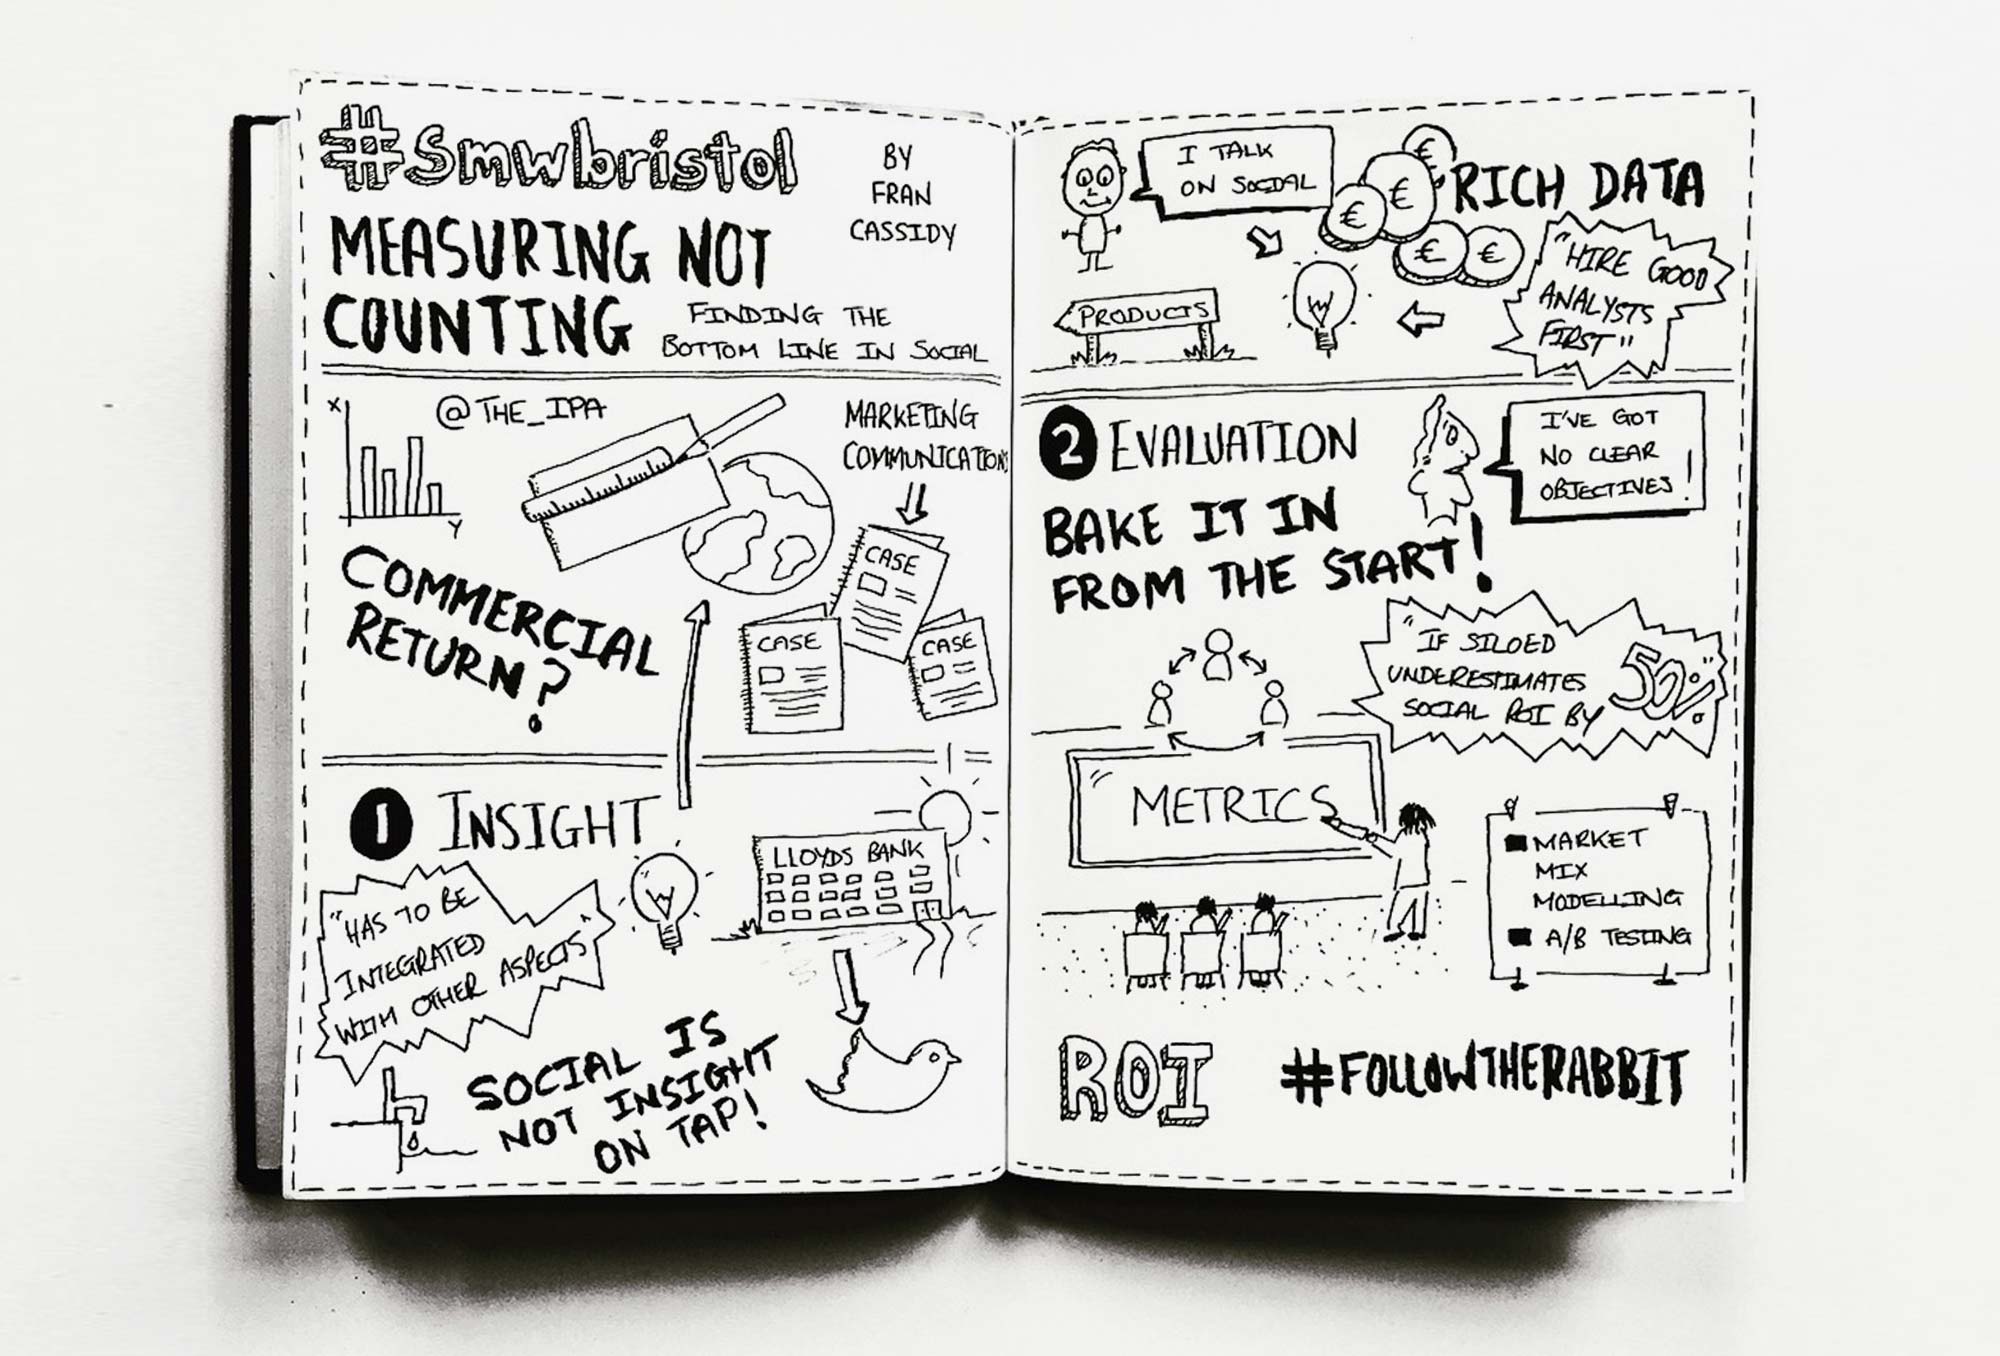 #Smwbristol
BY
FRAN
CASSIDY
MEASURING NOT
COUNTING
FINDING THE
BOTTOM LINE IN SOCIAL
X
Y
@THE_IPA
MARKETING
COMMUNICATIONS
CASE
CASE
CASE
COMMERCIAL
RETURN?
1 INSIGHT
"HAS TO BE
INTEGRATED
WITH OTHER ASPECTS"
LLOYDS BANK
SOCIAL IS
NOT INSIGHT
ON TAP!
I TALK
ON SOCIAL
€
€
€
€
€
RICH DATA
"HIRE GOOD
ANALYSTS
FIRST"
PRODUCTS
2 EVALUATION
I'VE GOT
NO CLEAR
OBJECTIVES!
BAKE IT IN
FROM THE START!
"IF SILOED
UNDERESTIMATES
SOCIAL ROI BY
50%"
METRICS
MARKET
MIX
MODELLING
A/B TESTING
ROI
#FOLLOWTHERABBIT